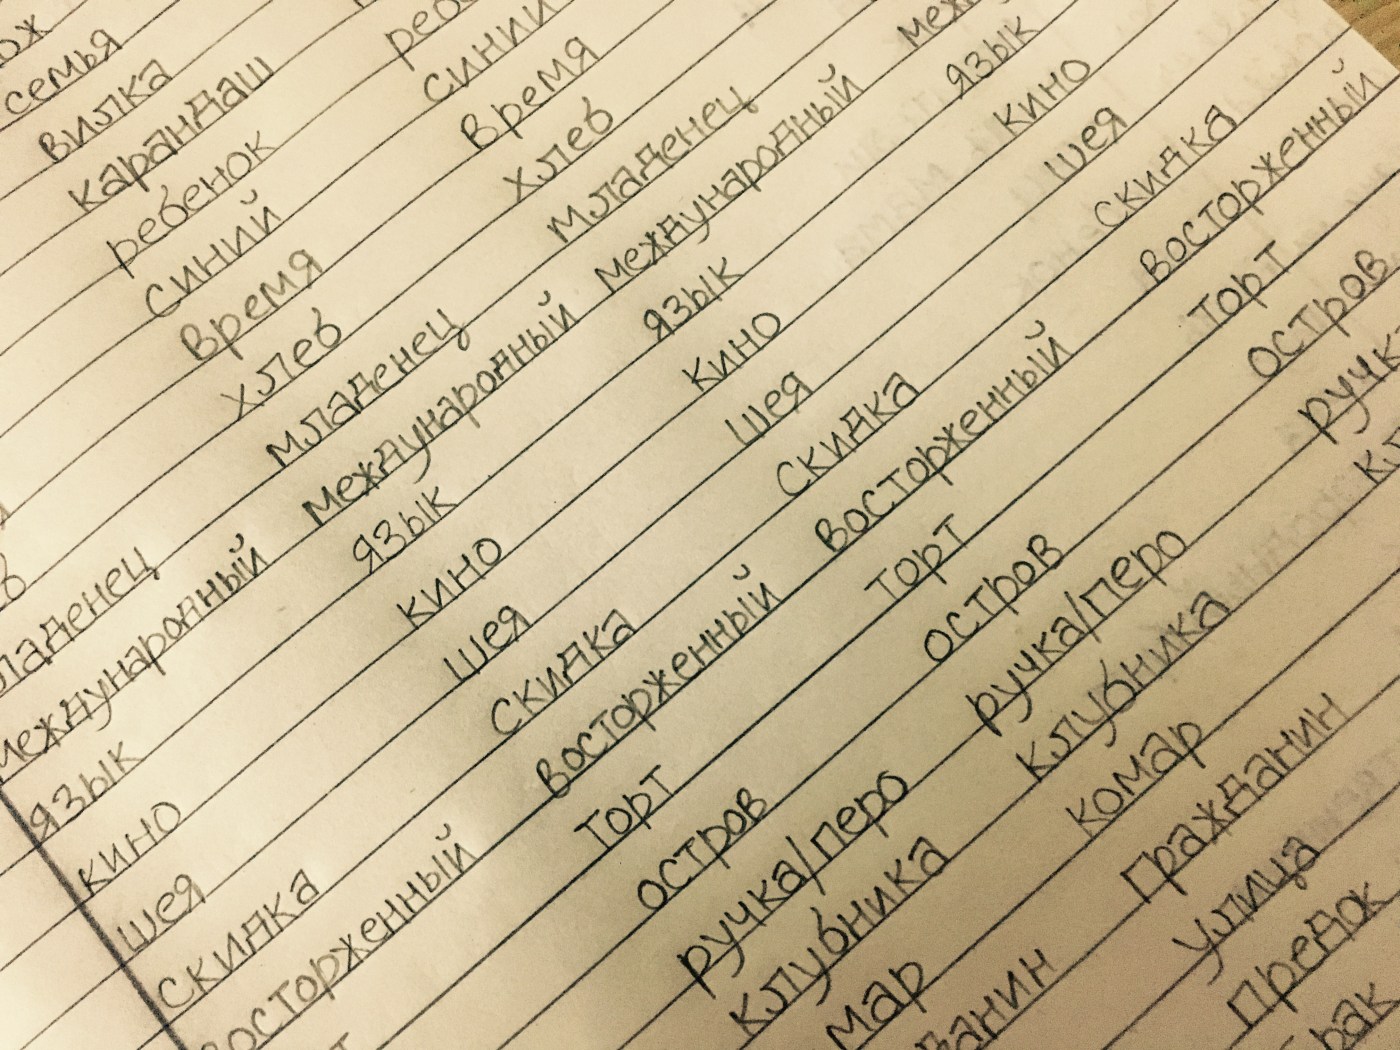 ож
семья
вилка
карандаш
ребенок ребе
синий синий
время время
хлеб хлеб
ладенец младенец младенец
международный международный международный меж
язык язык язык язык
кино кино кино кино
шея шея шея шея
скидка скидка скидка скидка
восторженный восторженный восторженный восторженный
торт торт торт
остров остров остров
ручка/перо ручка/перо ручк
клубника клубника кл
мар комар
данин гражданин
улица
Предок
рак